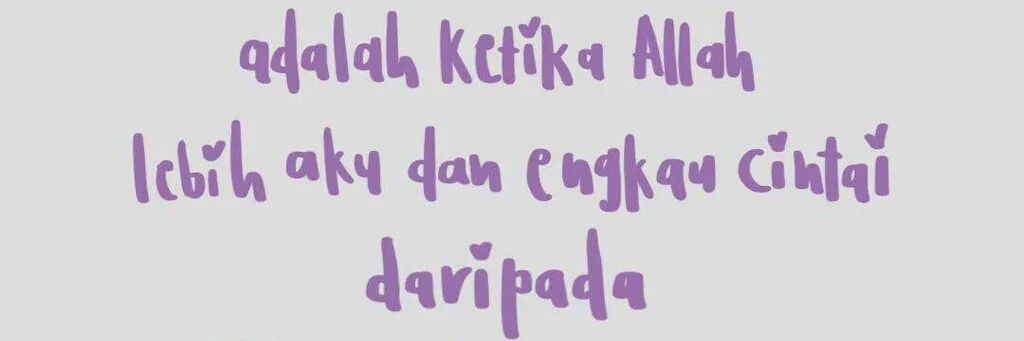 adalah Ketika Allah
lebih aku dan engkau cintai
daripada